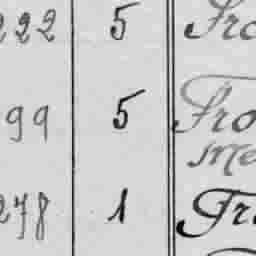 222 5 Fro
99 5 Fro
Me
278 1 Fr